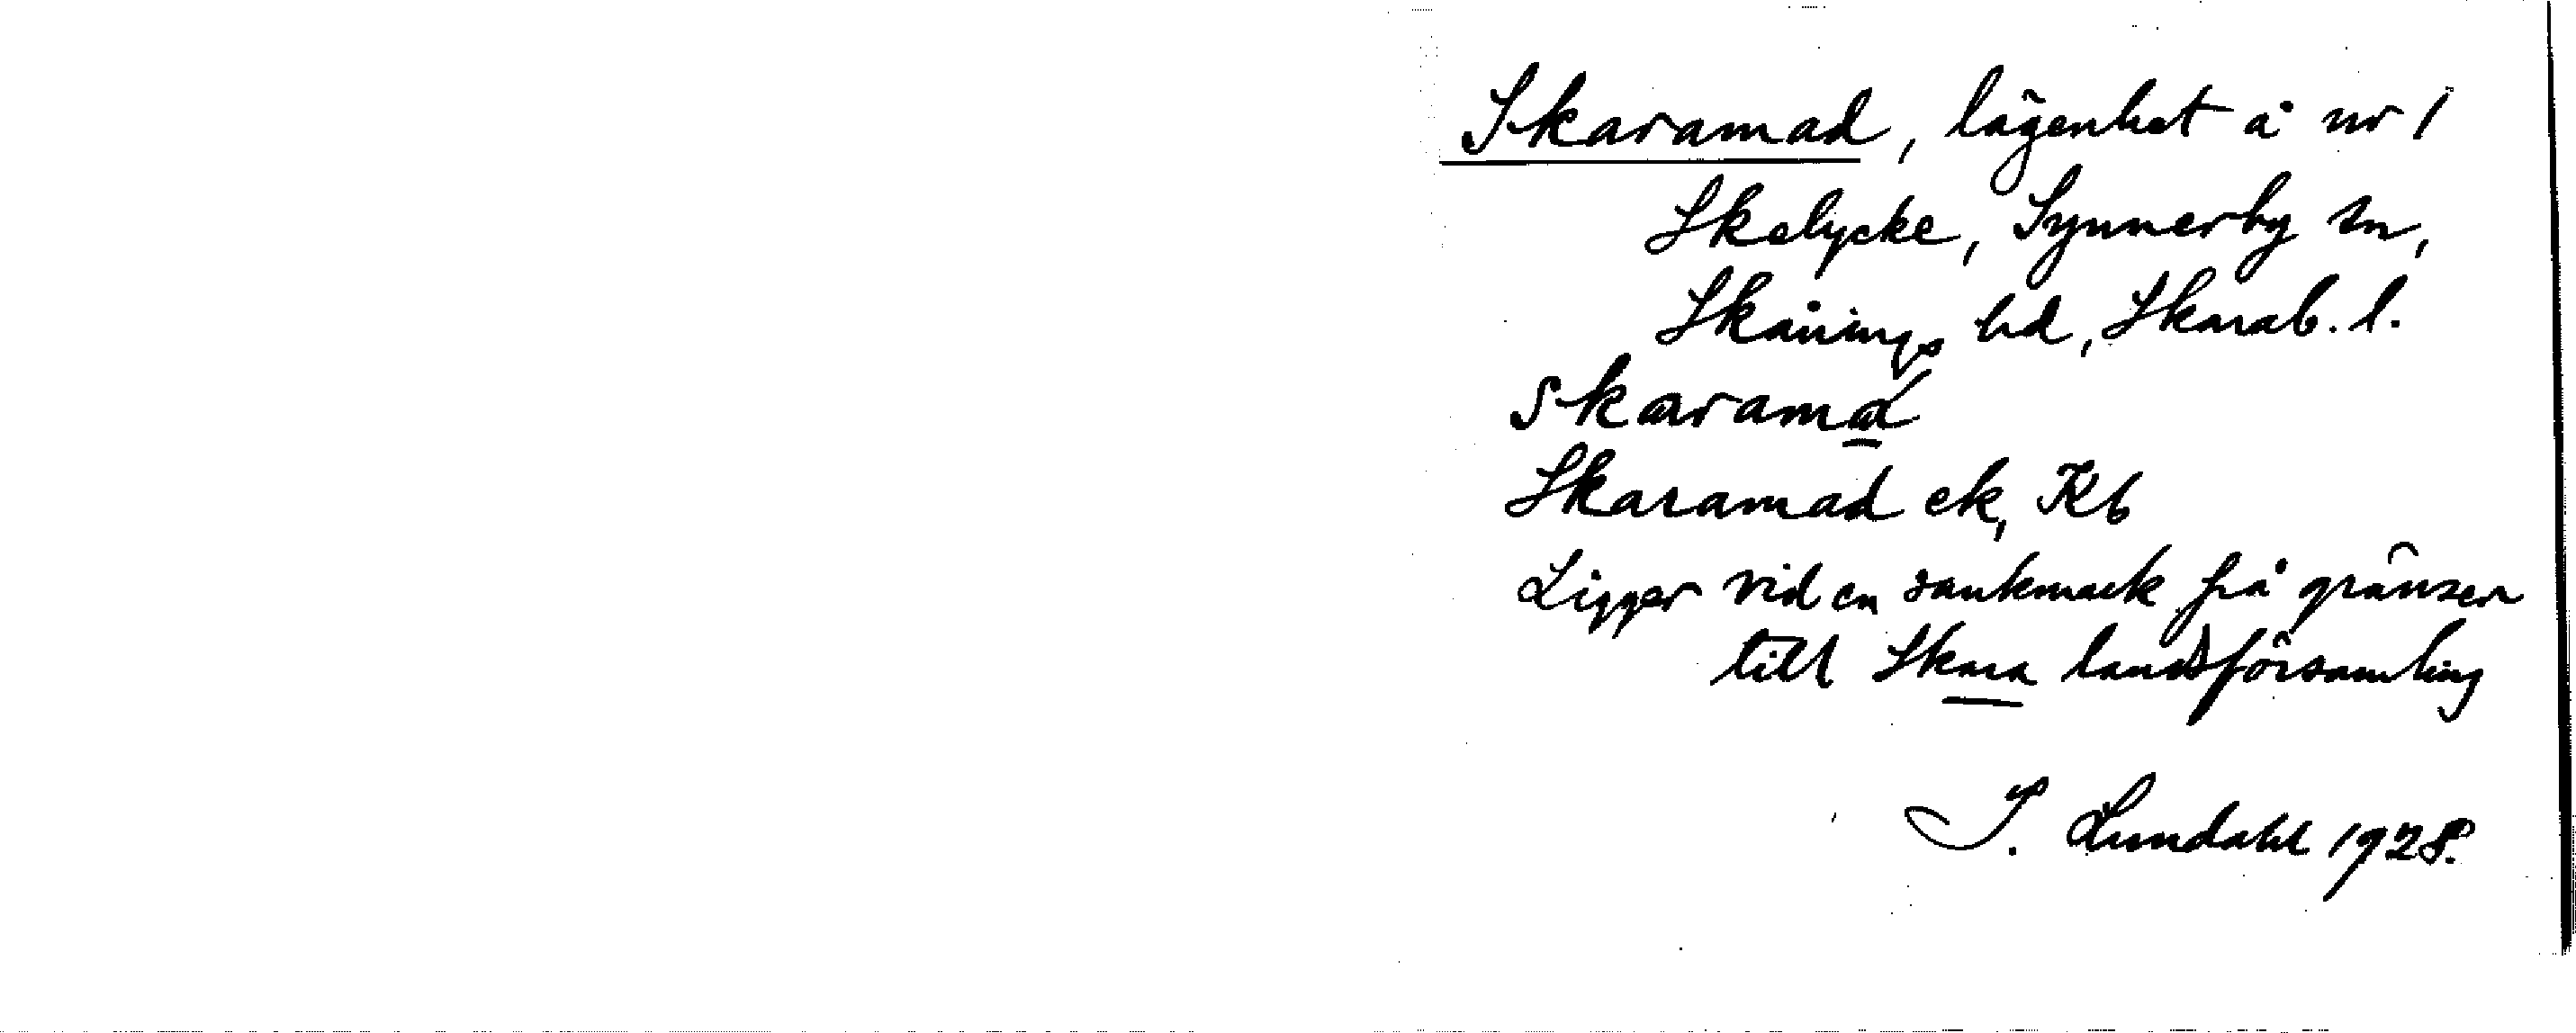 Skaramad, lägenhet å nr 1
Skelycke, Synnerby sn,
Skånings hd, Skarab. l.
skaramɑ̱
Skaramad ek, Kb
Ligger vid en sankmark på gränsen
till Skara landsförsamling
I. Lundahl 1928.